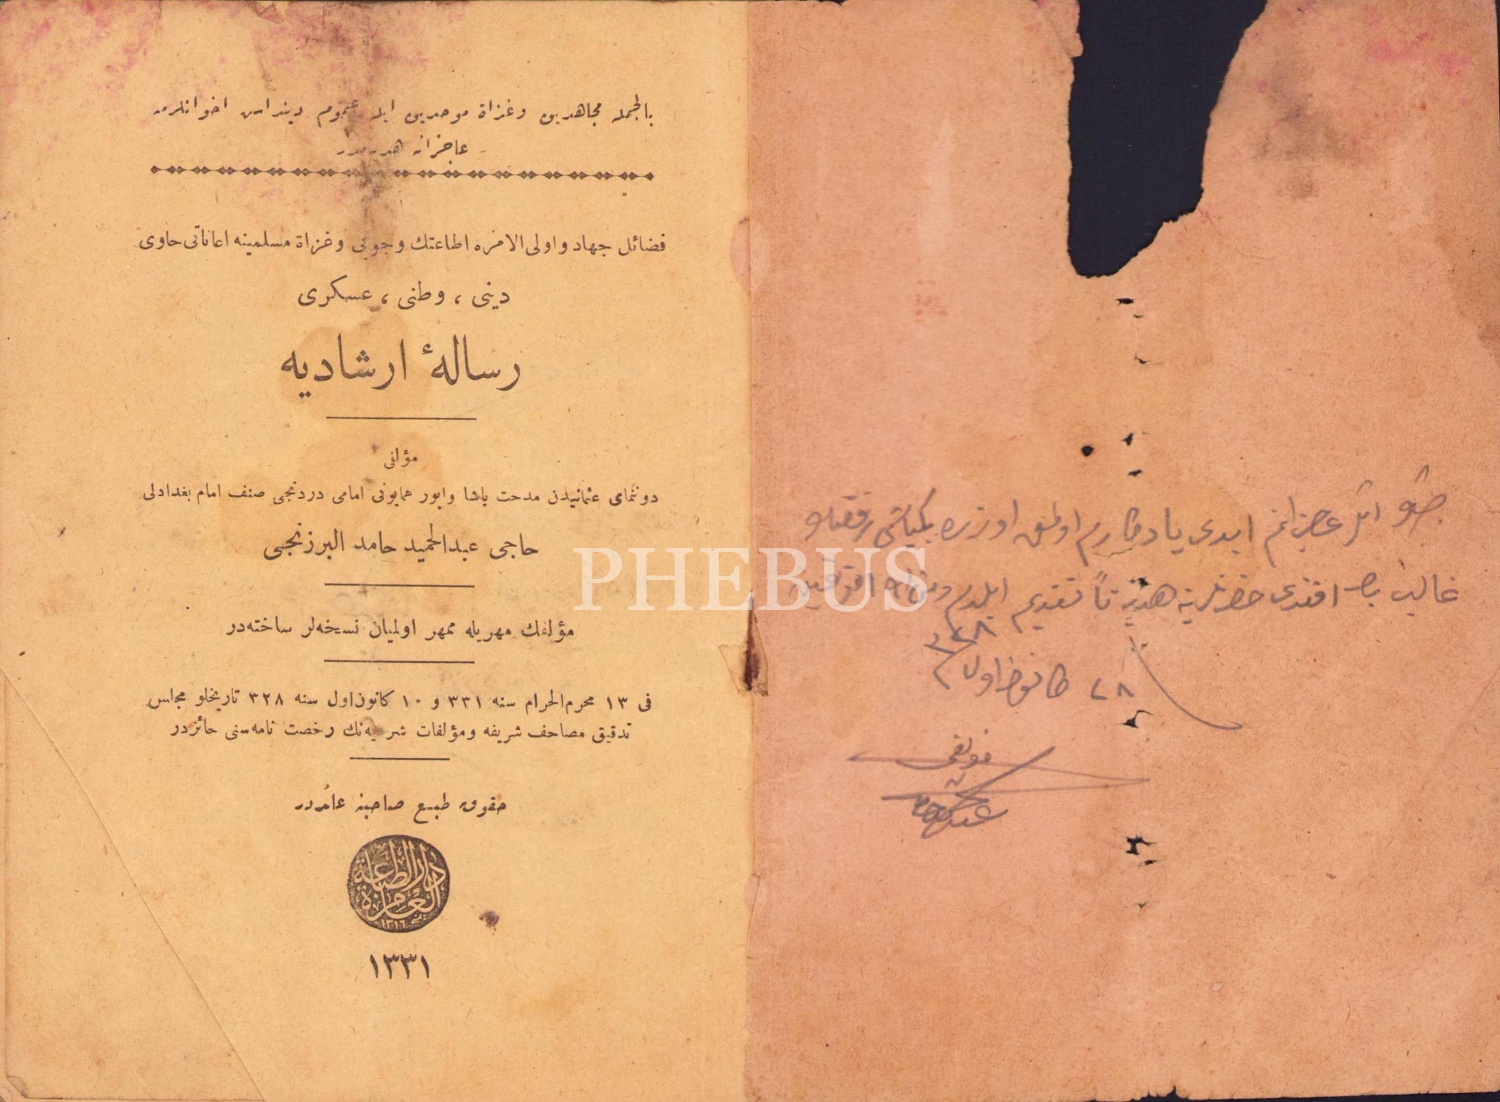 بالجمله مجاهدین و غزاة موحدین ایله عموم دیندا‌ش اخوانلرمه
عاجزانه هدیه‌مدر
فضائل جهاد و اولی‌الامره اطاعتك وجوبی و غزاة مسلمینه اعاناتی حاوی
دینی ، وطنی ، عسکری
رسالهٔ ارشادیه
مؤلفی
دوننمای عثمانیدن مدحت پاشا واپور همایونی امامی دردنجی صنف امام بغدادلی
حاجی عبدالحمید حامد البرزنجی
مؤلفك مهریله ممهر اولمیان نسخه‌لر ساخته‌در
فی ١٣ محرم‌الحرام سنه ٣٣١ و ١٠ كانون‌اول سنه ٣٢٨ تاریخلو مجلس
تدقیق مصاحف شریفه و مؤلفات شرعیه‌نك رخصت نامه‌سنی حائزدر
حقوق طبع صاحبنه عائددر
دار الطباعة العامرة
١٣٣١
اثر عاجزانه‌م ابدی یادكارم اولمق اوزره بیكباشی رفعتلو
غالب بك افندی حضرتلرینه هدیةً تقدیم ایلدم
٢٨ كانون اول ٣٢٨
مؤلفی
PHEBUS